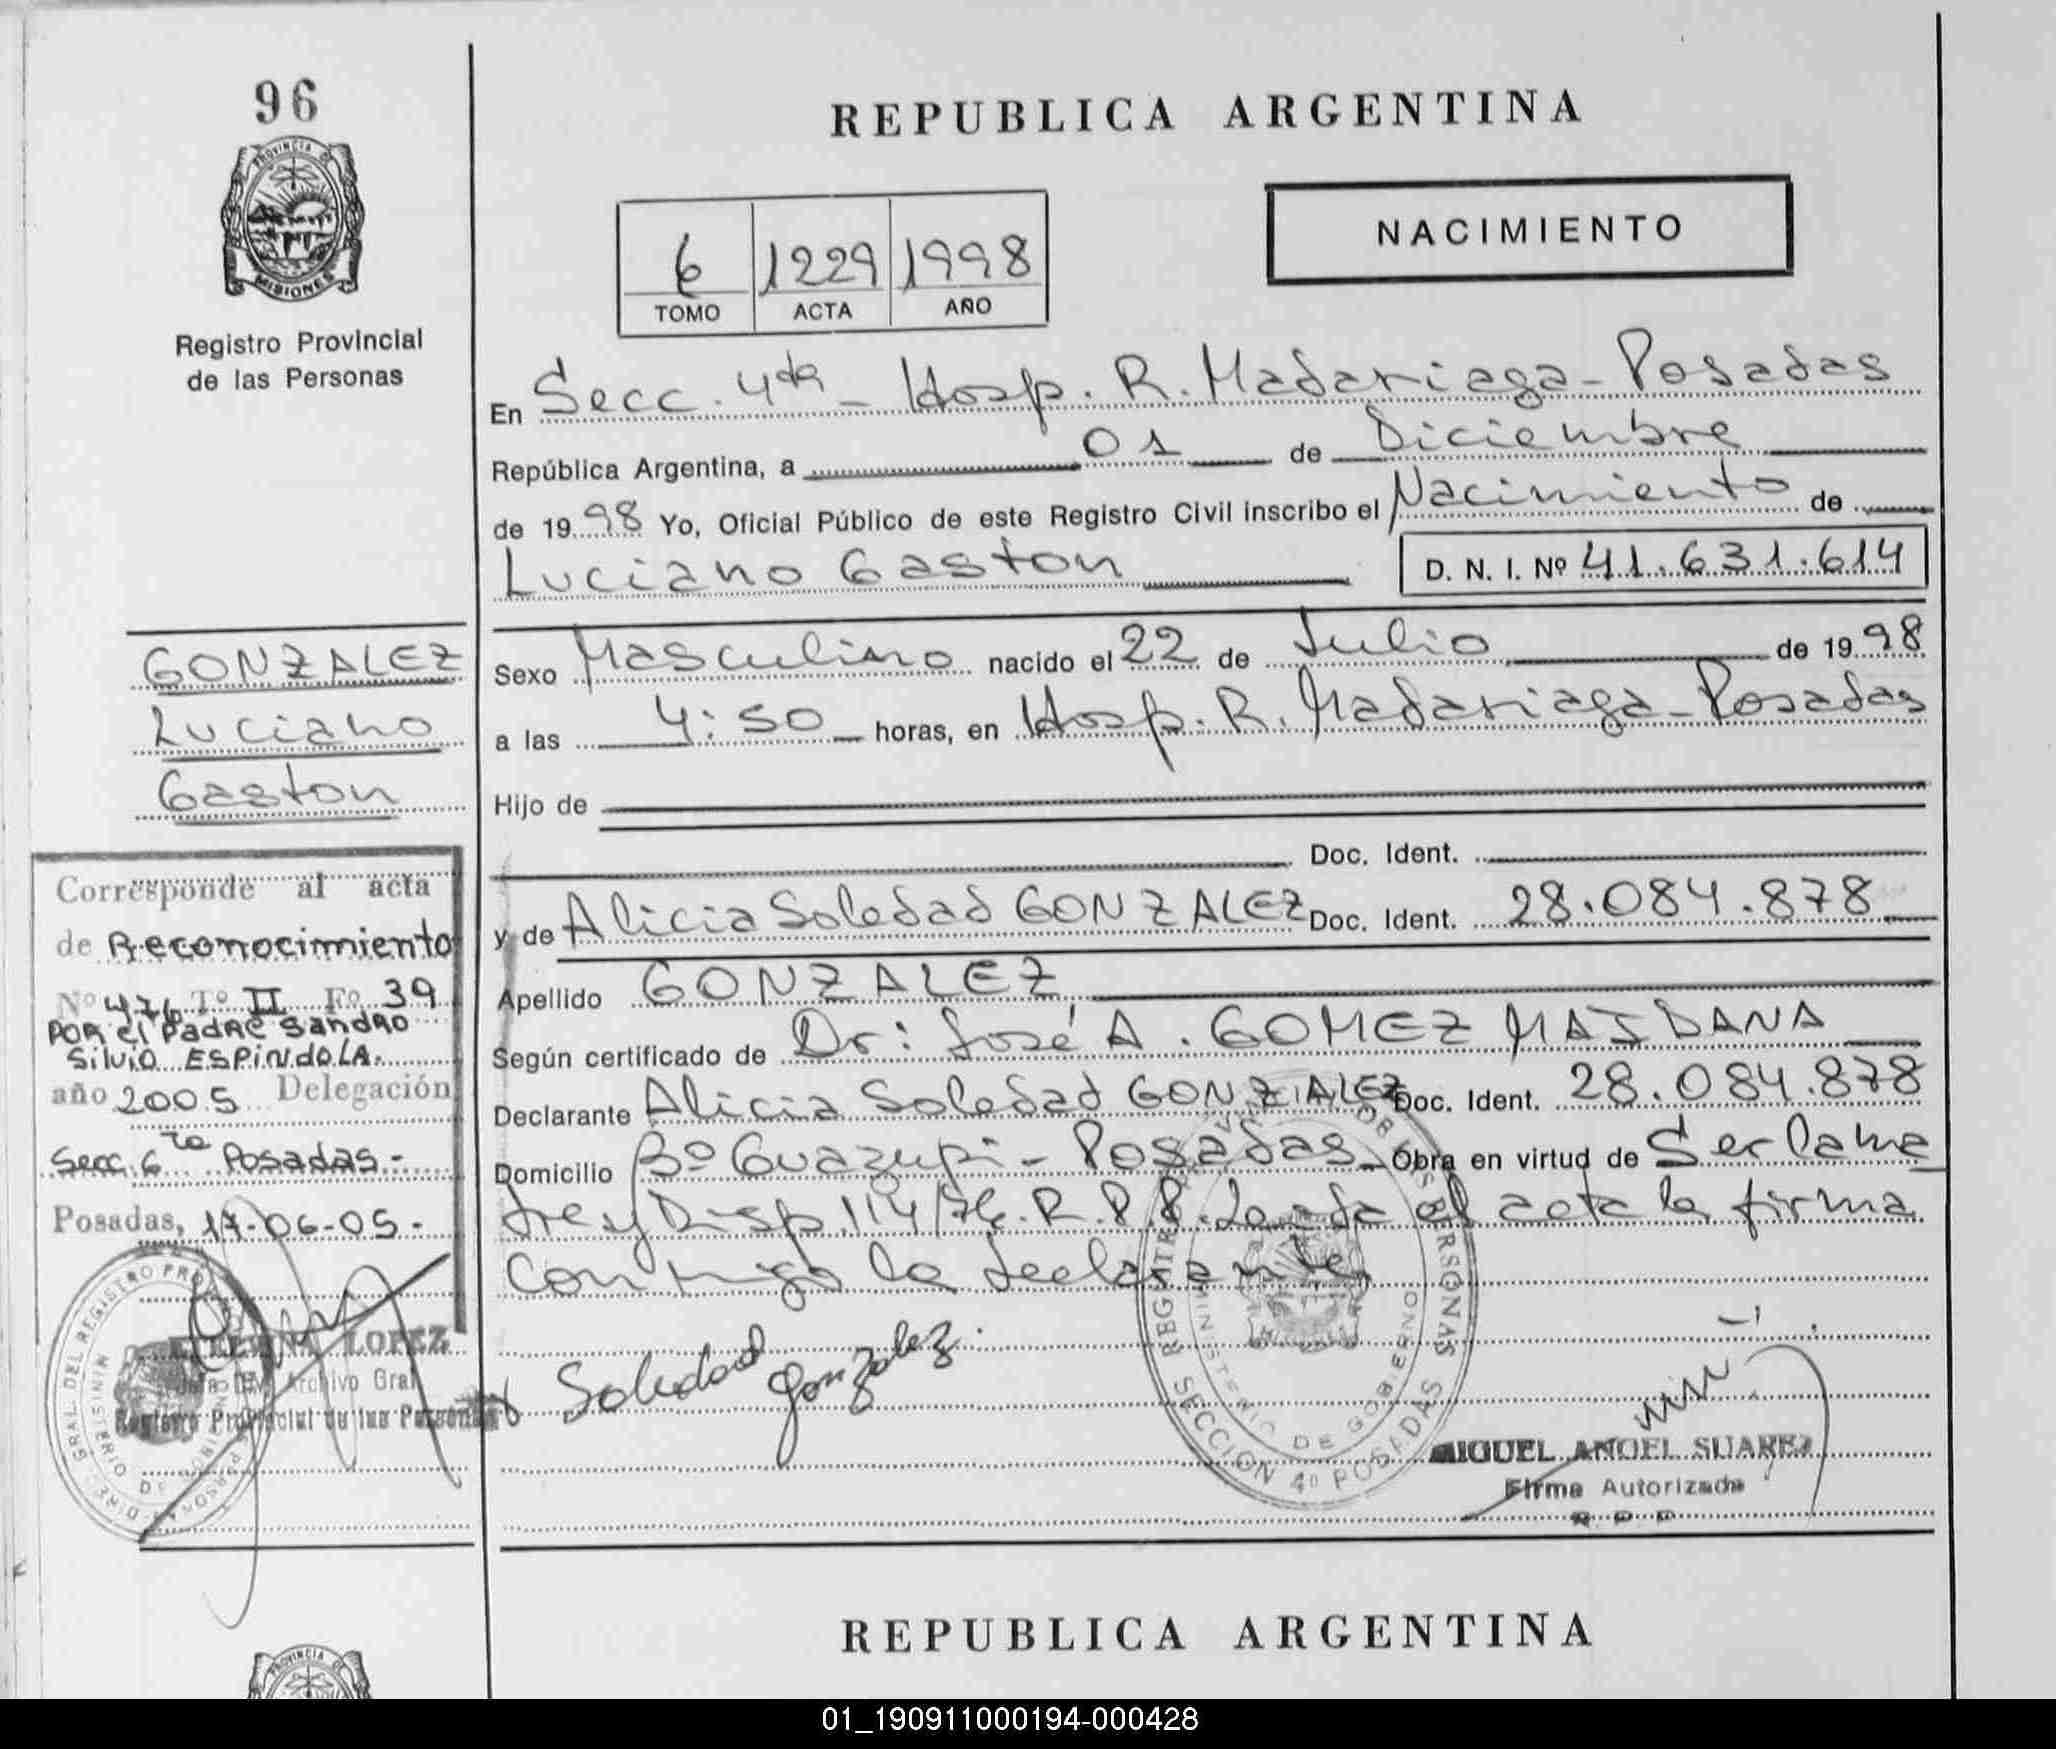 96
PROVINCIA DE
MISIONES
Registro Provincial
de las Personas
REPUBLICA ARGENTINA
6 1229 1998
TOMO ACTA AÑO
NACIMIENTO
En Secc. 4ta - Hosp. R. Madariaga - Posadas
República Argentina, a 01 de Diciembre
de 1998 Yo, Oficial Público de este Registro Civil inscribo el Nacimiento de
Luciano Gaston D. N. I. Nº 41.631.614
GONZALEZ
Luciano
Gaston
Sexo Masculino nacido el 22 de Julio de 1998
a las 4:50 horas, en Hosp. R. Madariaga - Posadas
Hijo de
Doc. Ident.
y de Alicia Soledad GONZALEZ Doc. Ident. 28.084.878
Apellido GONZALEZ
Según certificado de Dr: José A. GOMEZ MAIDANA
Declarante Alicia Soledad GONZALEZ Doc. Ident. 28.084.878
Domicilio Bº Guazupi - Posadas Obra en virtud de Ser la ma
dre y Disp. 114/76. R.P.P. el acta la firma
conmigo la declarante
Soledad Gonzalez.
REGISTRO PERSONAS
MINISTERIO DE GOBIERNO
SECCION 4º POSADAS
MIGUEL ANGEL SUAREZ
Firma Autorizada
R. P. P.
Corresponde al acta
de Reconocimiento
Nº 476 Tº II Fº 39
POR el PADRE SANDRO
SILVIO ESPINDOLA.
año 2005 Delegación
Secc. 6ta Posadas -
Posadas, 17-06-05.-
LOPEZ
Archivo Gral
Registro Provincial de las Personas
REPUBLICA ARGENTINA
PROVINCIA DE
01_190911000194-000428